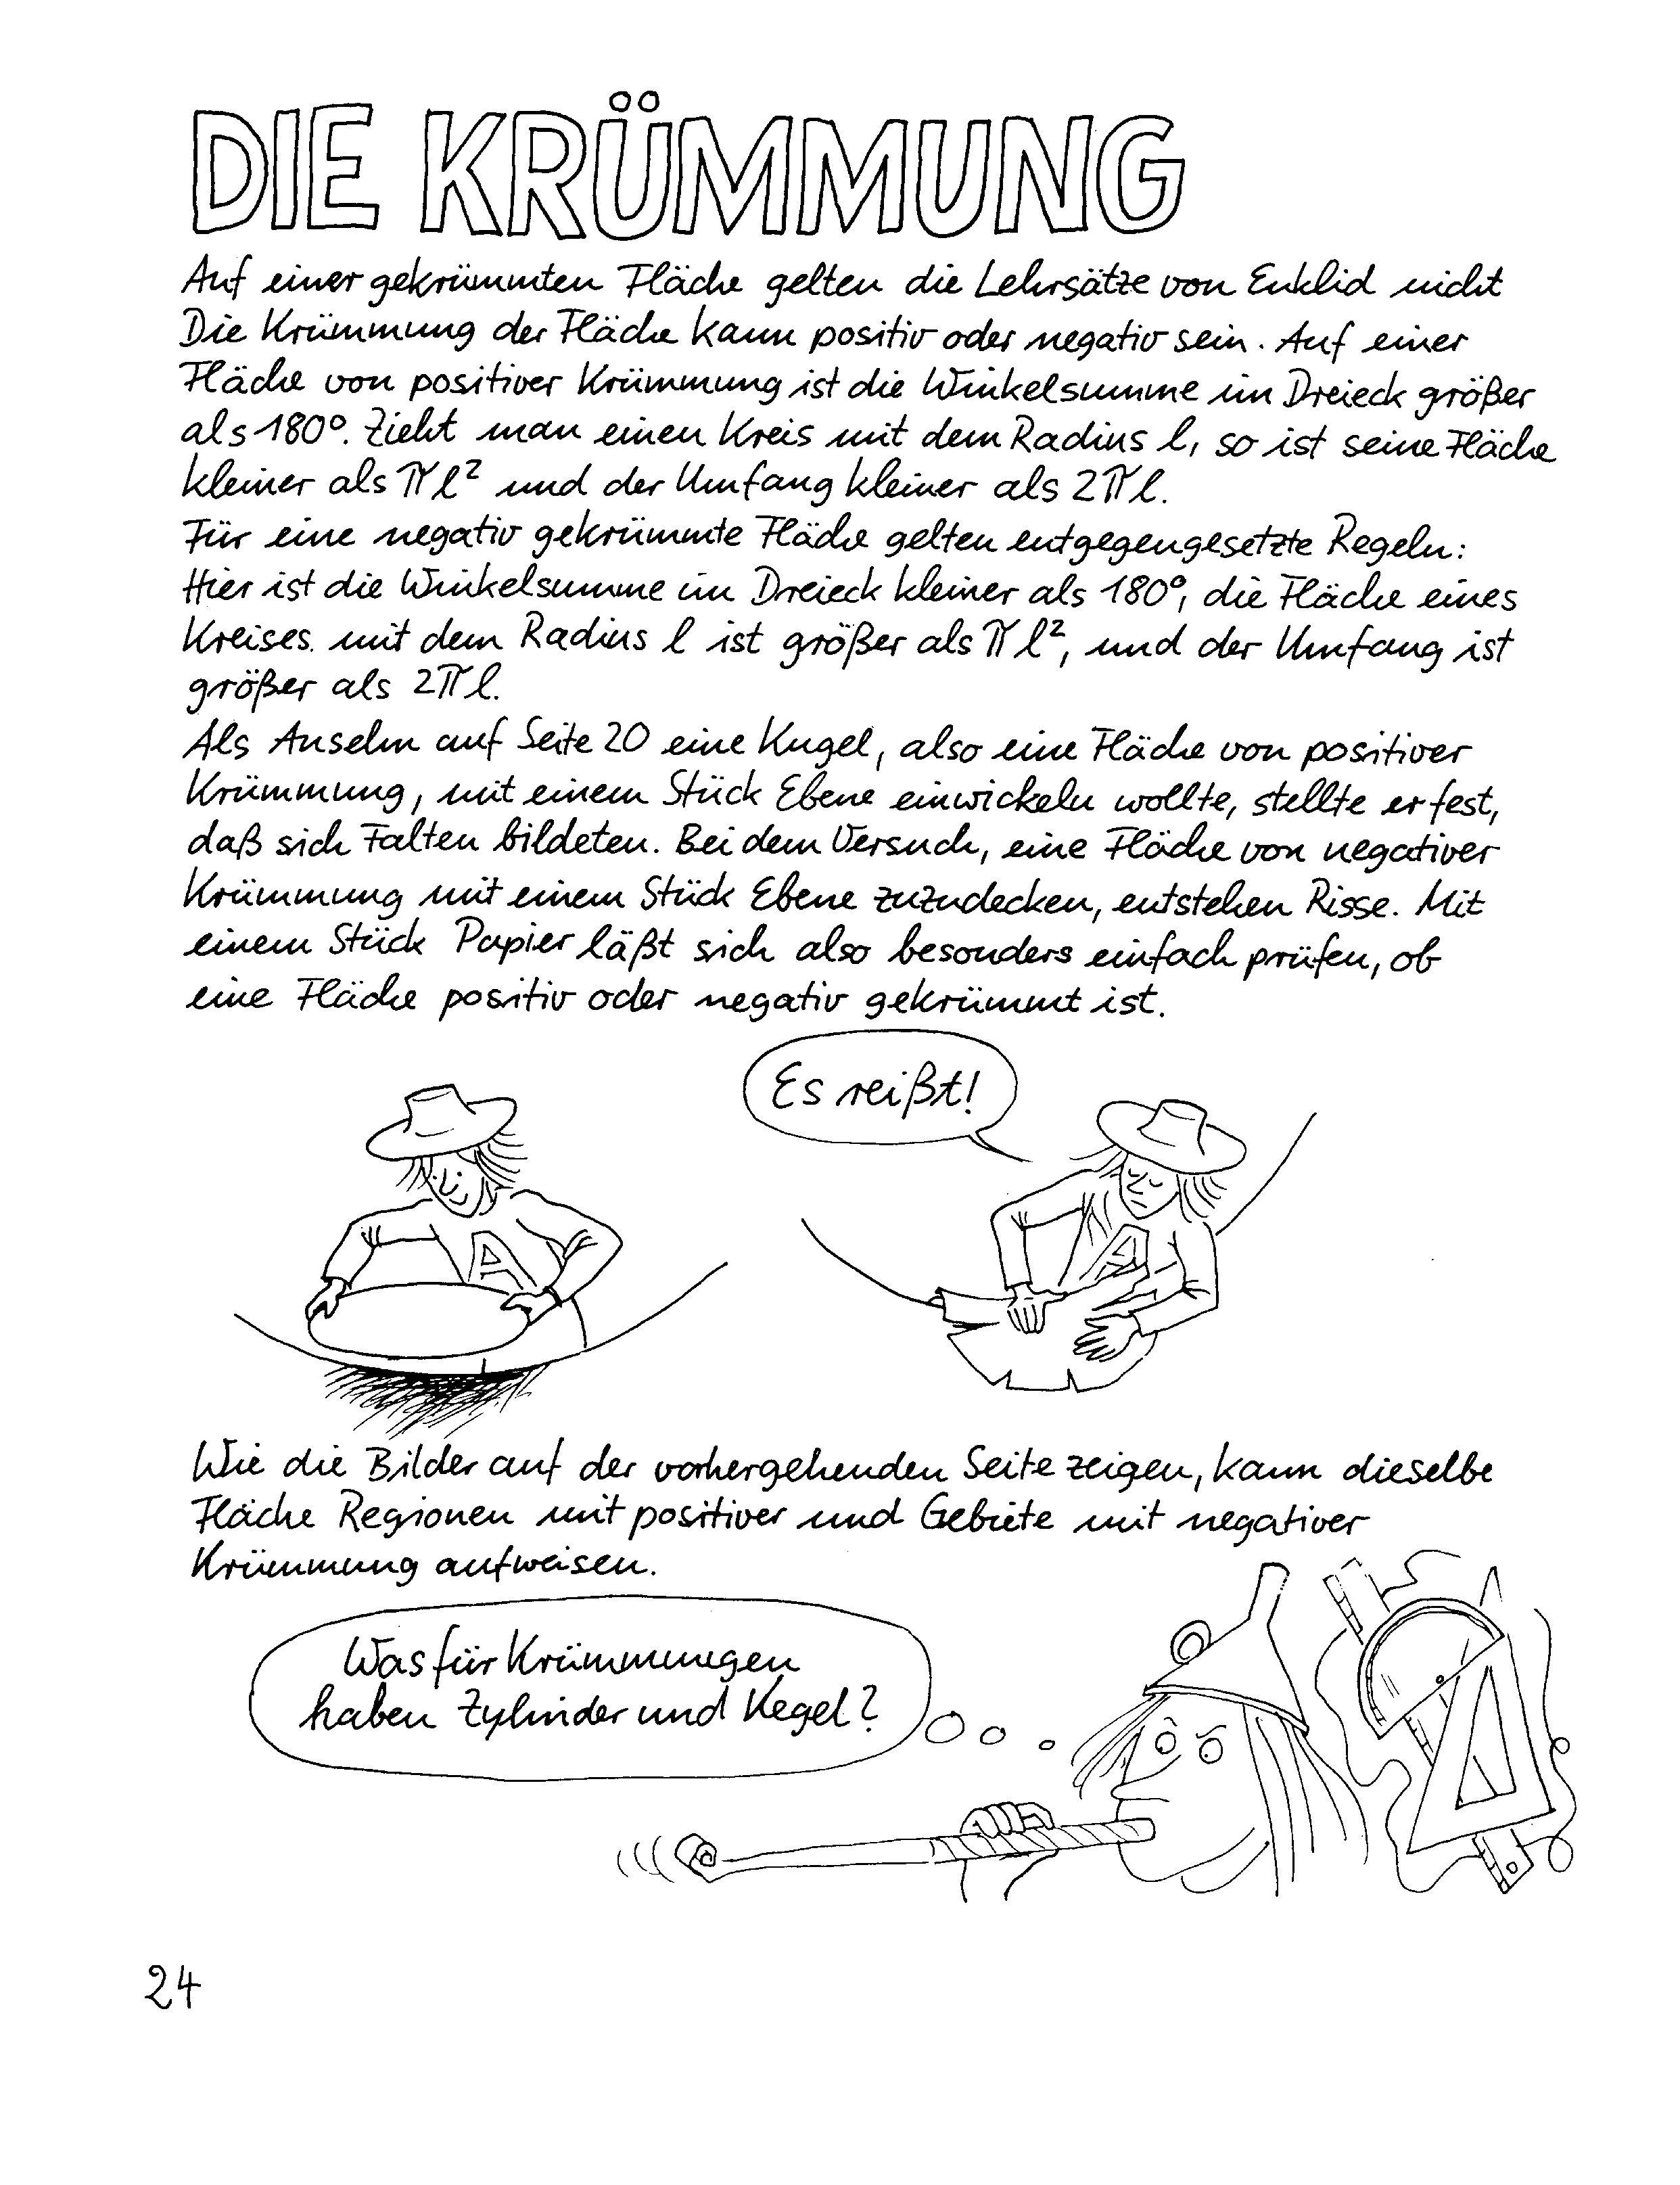 DIE KRÜMMUNG
Auf einer gekrümmten Fläche gelten die Lehrsätze von Euklid nicht
Die Krümmung der Fläche kann positiv oder negativ sein. Auf einer
Fläche von positiver Krümmung ist die Winkelsumme im Dreieck größer
als 180°. Zieht man einen Kreis mit dem Radius l, so ist seine Fläche
kleiner als πl² und der Umfang kleiner als 2πl.
Für eine negativ gekrümmte Fläche gelten entgegengesetzte Regeln:
Hier ist die Winkelsumme im Dreieck kleiner als 180°, die Fläche eines
Kreises. mit dem Radius l ist größer als πl², und der Umfang ist
größer als 2πl.
Als Anselm auf Seite 20 eine Kugel, also eine Fläche von positiver
Krümmung, mit einem Stück Ebene einwickeln wollte, stellte er fest,
daß sich Falten bildeten. Bei dem Versuch, eine Fläche von negativer
Krümmung mit einem Stück Ebene zuzudecken, entstehen Risse. Mit
einem Stück Papier läßt sich also besonders einfach prüfen, ob
eine Fläche positiv oder negativ gekrümmt ist.
Es reißt!
A
A
Wie die Bilder auf der vorhergehenden Seite zeigen, kann dieselbe
Fläche Regionen mit positiver und Gebiete mit negativer
Krümmung aufweisen.
Was für Krümmungen
haben Zylinder und Kegel?
24